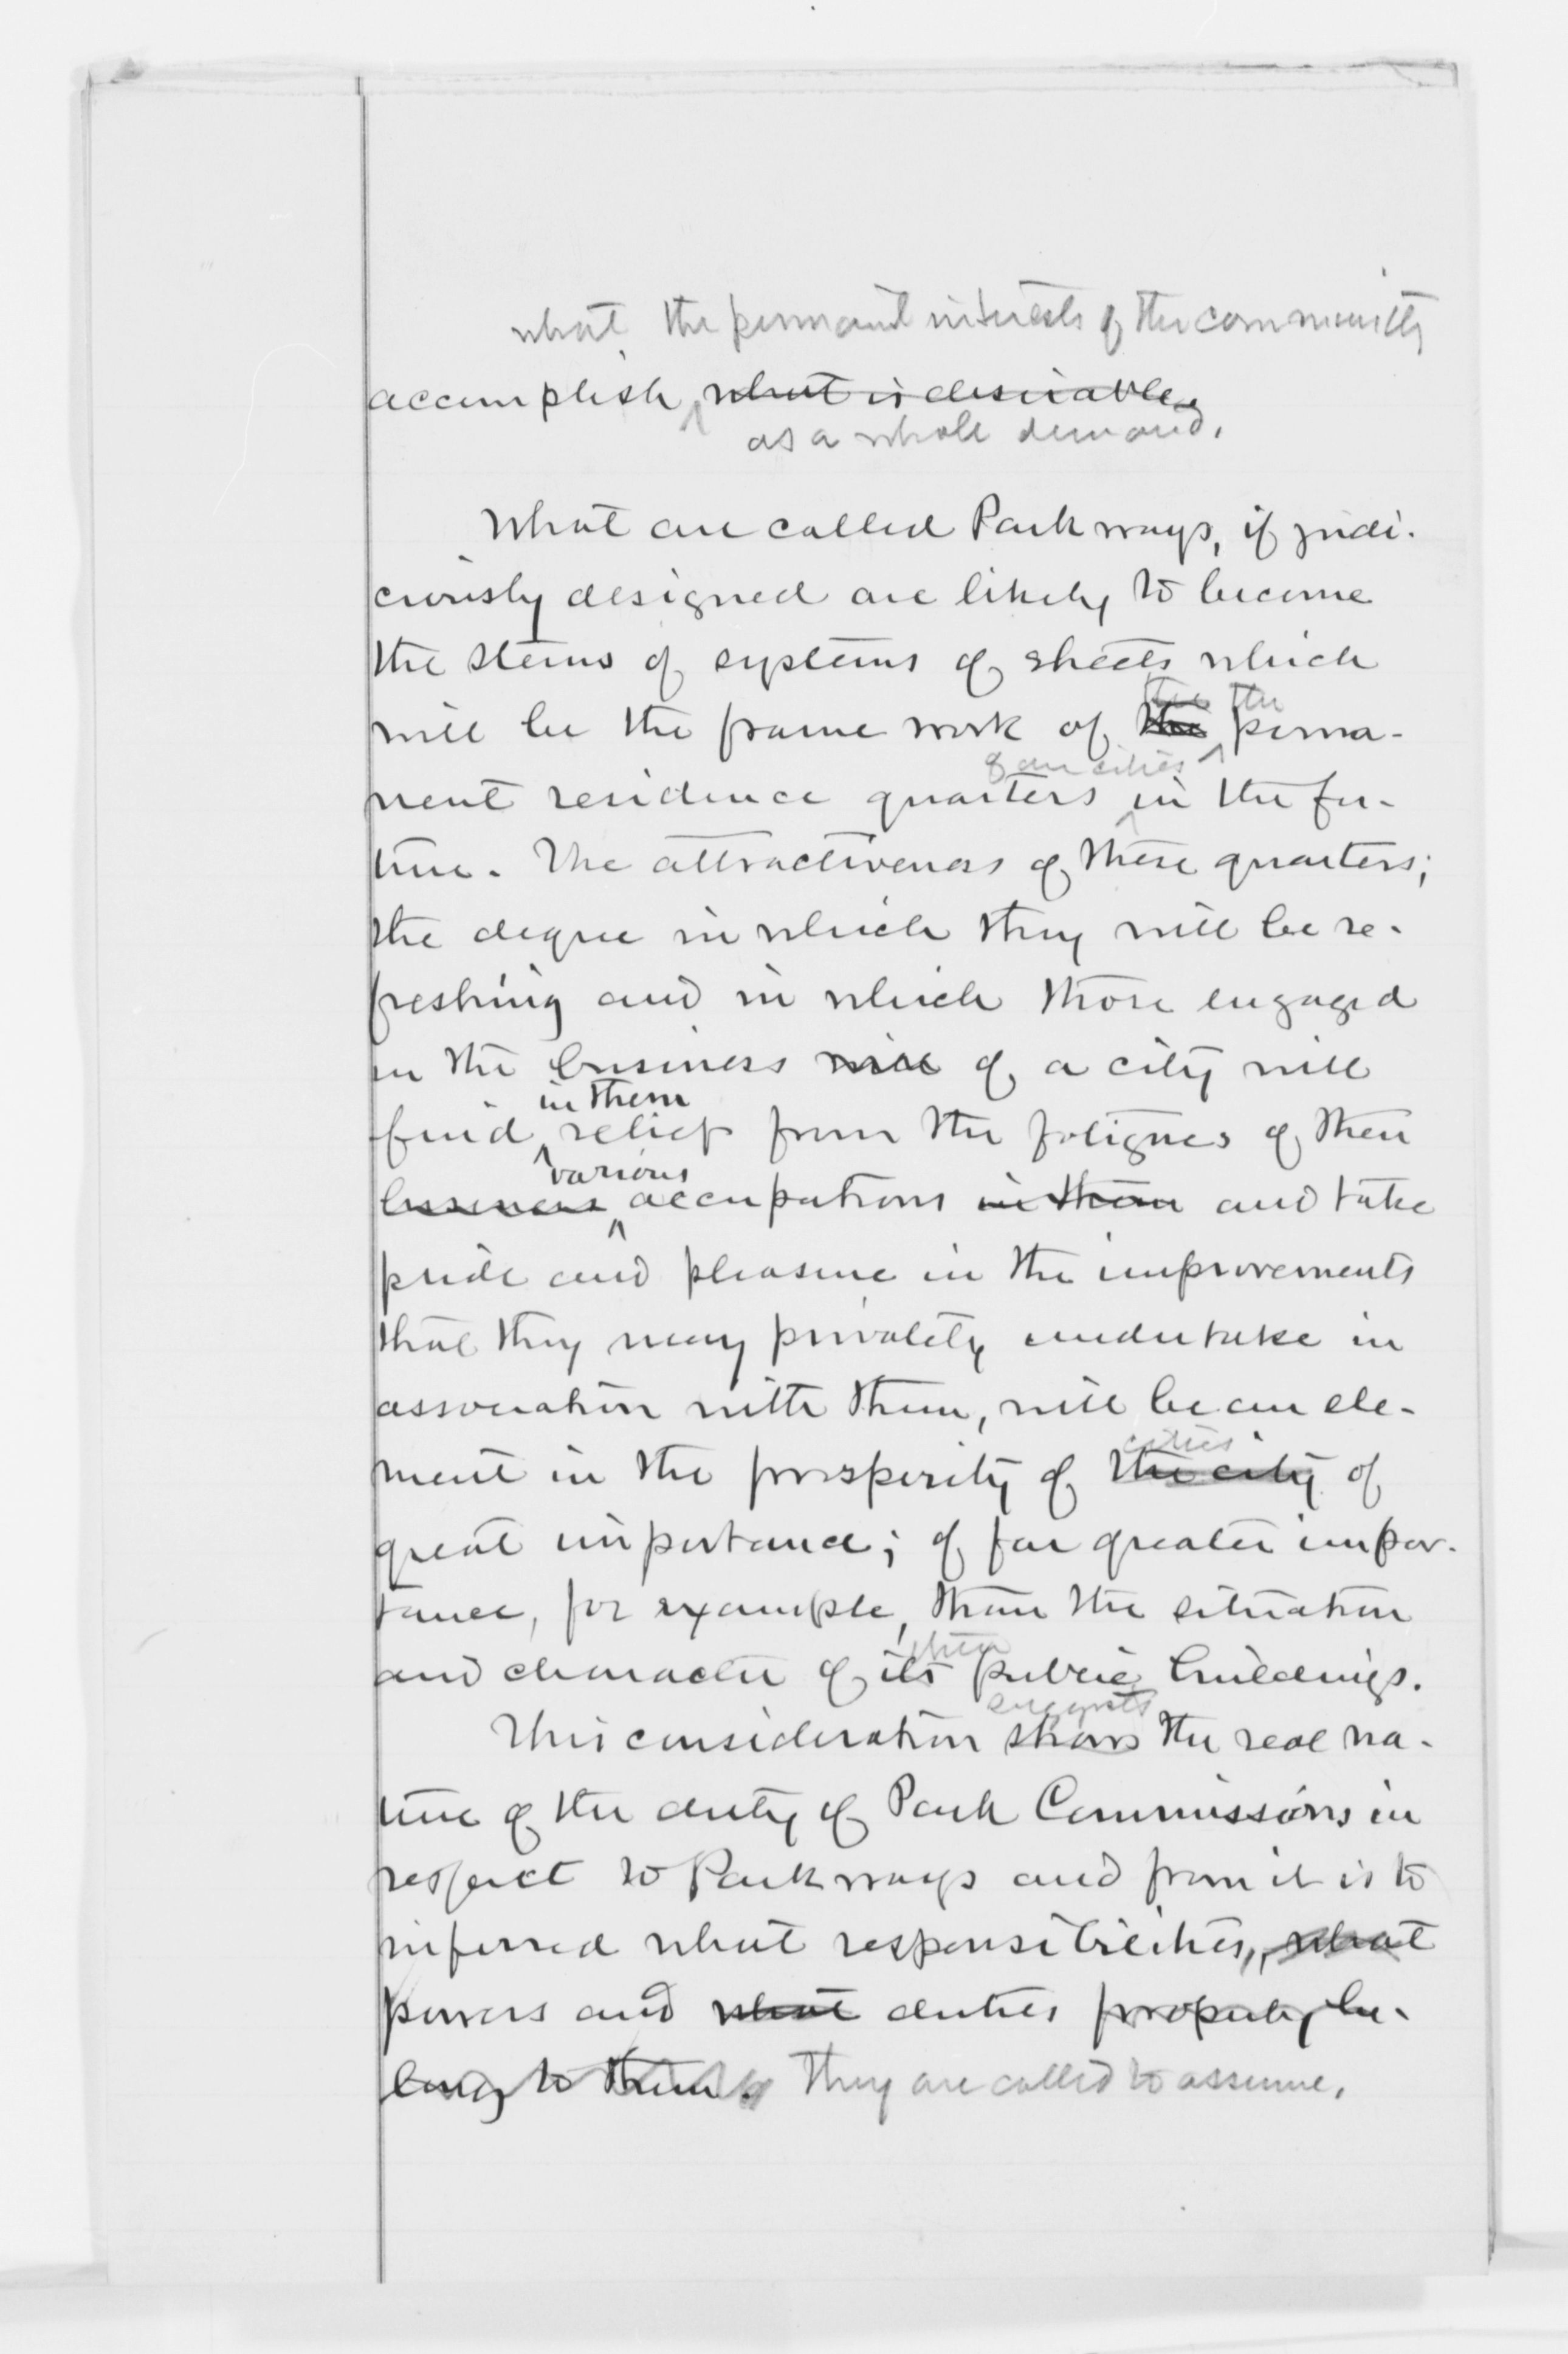 what the permanent interests of the community
accomplish what is desirable,
as a whole demand.
What are called Parkways, if judi-
ciously designed are likely to become
the stems of systems of streets which
the the
will be the frame work of the perma-
of our cities
nent residence quarters in the fu-
ture. The attractiveness of these quarters;
the degree in which they will be re-
freshing and in which those engaged
in the business will of a city will
in them
find relief from the fatigues of their
various
business occupations in them and take
pride and pleasure in the improvements
that they may privately undertake in
association with them, will be an ele-
cities
ment in the prosperity of the city of
great importance; of far greater impor-
tance, for example, than the situation
their
and character of its public buildings.
suggests
This consideration shows the real na-
ture of the duty of Park Commissions in
respect to Parkways and from it is to
inferred what responsibilities, what
powers and what duties properly be-
long to them. they are called to assume.